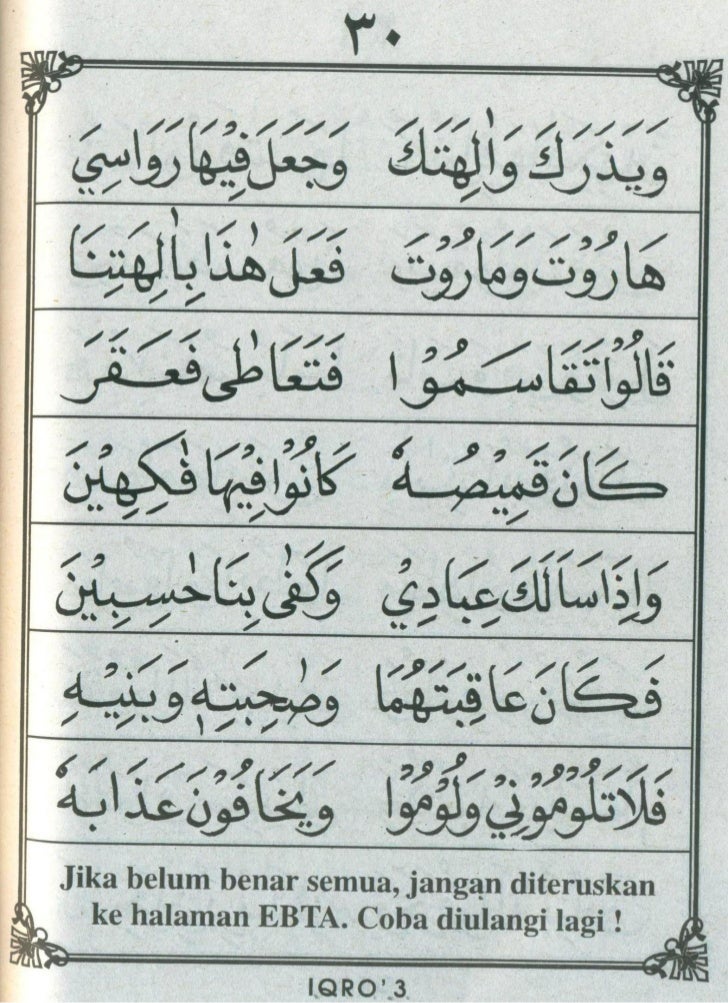 ٣٠
وَيَذَرَكَ وَاٰلِهَتَكَ وَجَعَلَ فِيْهَا رَوَاسِيَ
هَارُوْتَ وَمَارُوْتَ فَعَلَ هٰذَا بِاٰلِهَتِنَا
قَالُوْا تَقَاسَمُوْا فَتَعَاطٰى فَعَقَرَ
كَانَ قَمِيْصُهٗ كَانُوْا فِيْهَا فٰكِهِيْنَ
وَاِذَا سَاَلَكَ عِبَادِيْ وَكَفٰى بِنَا حٰسِبِيْنَ
فَكَانَ عَاقِبَتَهُمَا وَصٰحِبَتِهٖ وَبَنِيْهِ
فَلَا تَلُوْمُوْنِيْ وَلُوْمُوْا وَيَخَافُوْنَ عَذَابَهٗ
Jika belum benar semua, jangan diteruskan
ke halaman EBTA. Coba diulangi lagi !
IQRO' 3